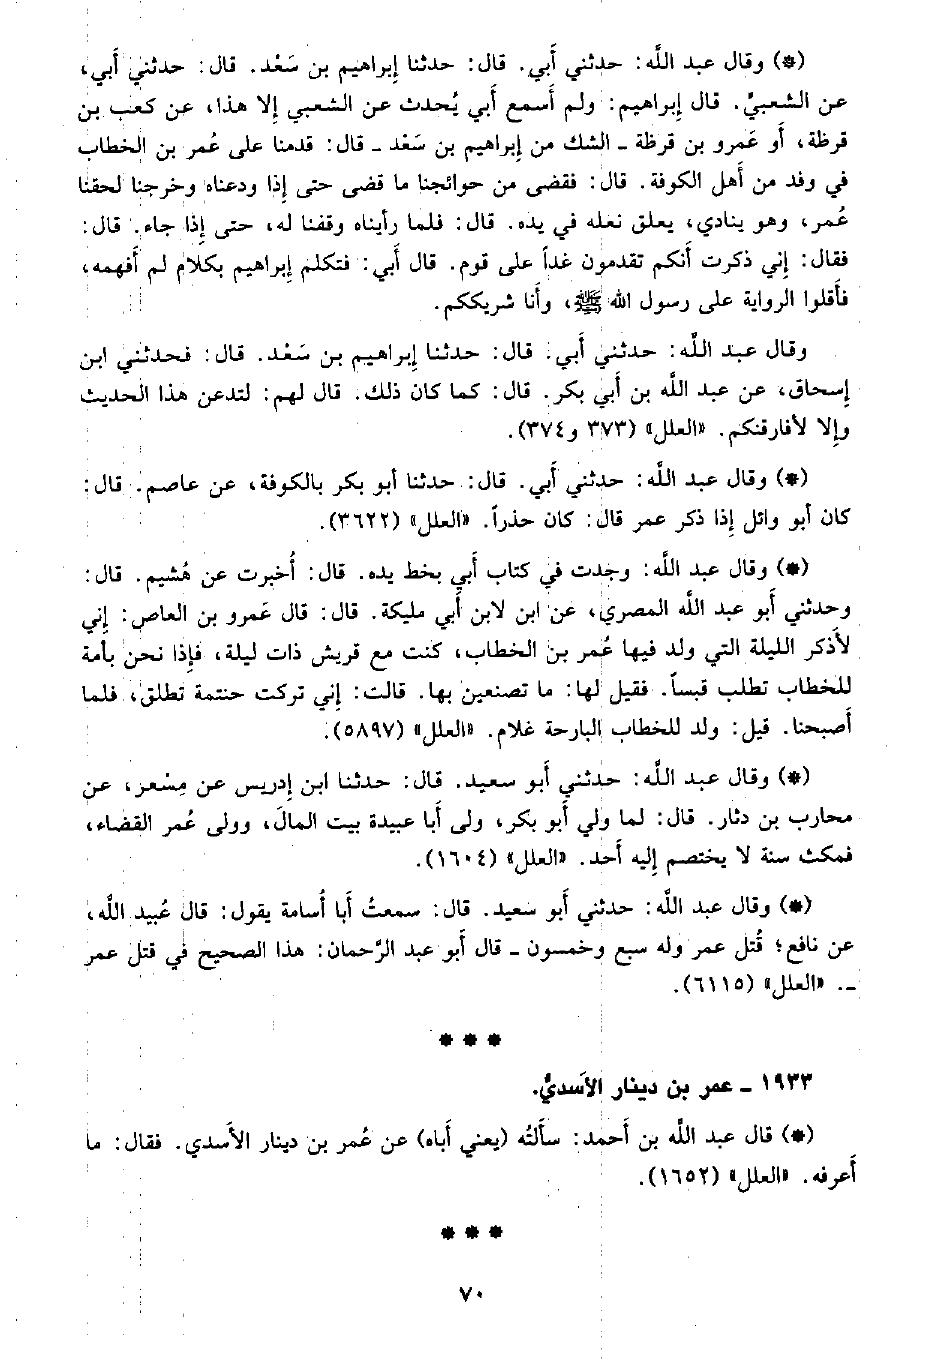 (*) وقال عبد اللَّه: حدثني أَبي. قال: حدثنا إِبراهيم بن سَعْد. قال: حدثني أَبي،
عن الشعبيِّ. قال إِبراهيم: ولم أَسمع أَبي يُحدث عن الشعبي إِلا هذا، عن كعب بن
قرظة، أَو عَمرو بن قرظة ـ الشك من إِبراهيم بن سَعْد ـ قال: قدمنا على عُمر بن الخطاب
في وفد من أَهل الكوفة. قال: فقضى من حوائجنا ما قضى حتى إِذا ودعناه وخرجنا لحقنا
عُمر، وهو ينادي، يعلق نعله في يده. قال: فلما رأَيناه وقفنا له، حتى إِذا جاء. قال:
فقال: إِني ذكرت أَنكم تقدمون غداً على قوم. قال أَبي: فتكلم إِبراهيم بكلام لم أَفهمه،
فأَقلوا الرواية على رسول الله ﷺ، وأَنا شريككم.
وقال عبد اللَّه: حدثني أَبي. قال: حدثنا إِبراهيم بن سَعْد. قال: فحدثني ابن
إِسحاق، عن عبد اللَّه بن أَبي بكر. قال: كما كان ذلك. قال لهم: لتدعن هذا الحديث
وإِلا لأفارقنكم. «العلل» (٣٧٣ و٣٧٤).
(*) وقال عبد اللَّه: حدثني أَبي. قال: حدثنا أَبو بكر بالكوفة، عن عاصم. قال:
كان أَبو وائل إِذا ذكر عمر قال: كان حذراً. «العلل» (٣٦٢٢).
(*) وقال عبد اللَّه: وجدت في كتاب أَبي بخط يده. قال: أُخبرت عن هُشيم. قال:
وحدثني أَبو عبد اللَّه المصري، عن ابن لابن أَبي مليكة. قال: قال عَمرو بن العاص: إِني
لأَذكر الليلة التي ولد فيها عُمر بن الخطاب، كنت مع قريش ذات ليلة، فإِذا نحن بأَمة
للخطاب تطلب قبساً. فقيل لها: ما تصنعين بها. قالت: إِني تركت حنتمة تطلق، فلما
أَصبحنا. قيل: ولد للخطاب البارحة غلام. «العلل» (٥٨٩٧).
(*) وقال عبد اللَّه: حدثني أَبو سعيد. قال: حدثنا ابن إِدريس عن مِسْعر، عن
محارب بن دثار. قال: لما ولي أَبو بكر، ولى أَبا عبيدة بيت المال، وولى عُمر القضاء،
فمكث سنة لا يختصم إِليه أَحد. «العلل» (١٦٠٤).
(*) وقال عبد اللَّه: حدثني أَبو سعيد. قال: سمعتُ أَبا أُسامة يقول: قال عُبيد اللَّه،
عن نافع؛ قُتل عمر وله سبع وخمسون ـ قال أَبو عبد الرَّحمان: هذا الصحيح في قتل عمر
ـ. «العلل» (٦١١٥).
* * *
١٩٣٣ ـ عمر بن دينار الأَسديُّ.
(*) قال عبد اللَّه بن أَحمد: سأَلتُه (يعني أَباه) عن عُمر بن دينار الأَسدي. فقال: ما
أَعرفه. «العلل» (١٦٥٢).
* * *
٧٠